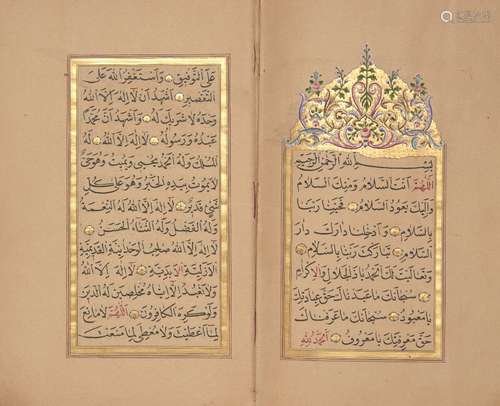 بسم الله الرحمن الرحيم
اللهم انت السلام ومنك السلام
واليك يعود السلام فحينا ربنا
بالسلام وادخلنا دارك دار
السلام تباركت ربنا بالسلام
وتعاليت لك الحمد يا ذا الجلال والاكرام
سبحانك ما عبدناك حق عبادتك
يا معبود سبحانك ما عرفناك
حق معرفتك يا معروف الحمد لله
على التوفيق واستغفر الله على
التقصير اشهد ان لا اله الا الله
وحده لا شريك له واشهد ان محمدا
عبده ورسوله لا اله الا الله له
الملك وله الحمد يحيي ويميت وهو حي
لا يموت بيده الخير وهو على كل
شيء قدير لا اله الا الله له النعمة
وله الفضل وله الثناء الحسن
لا اله الا الله الوحدانية القديمة
الازلية الابدية لا اله الا الله
ولا نعبد الا اياه مخلصين له الدين
ولو كره الكافرون اللهم لا مانع
لما اعطيت ولا معطي لما منعت